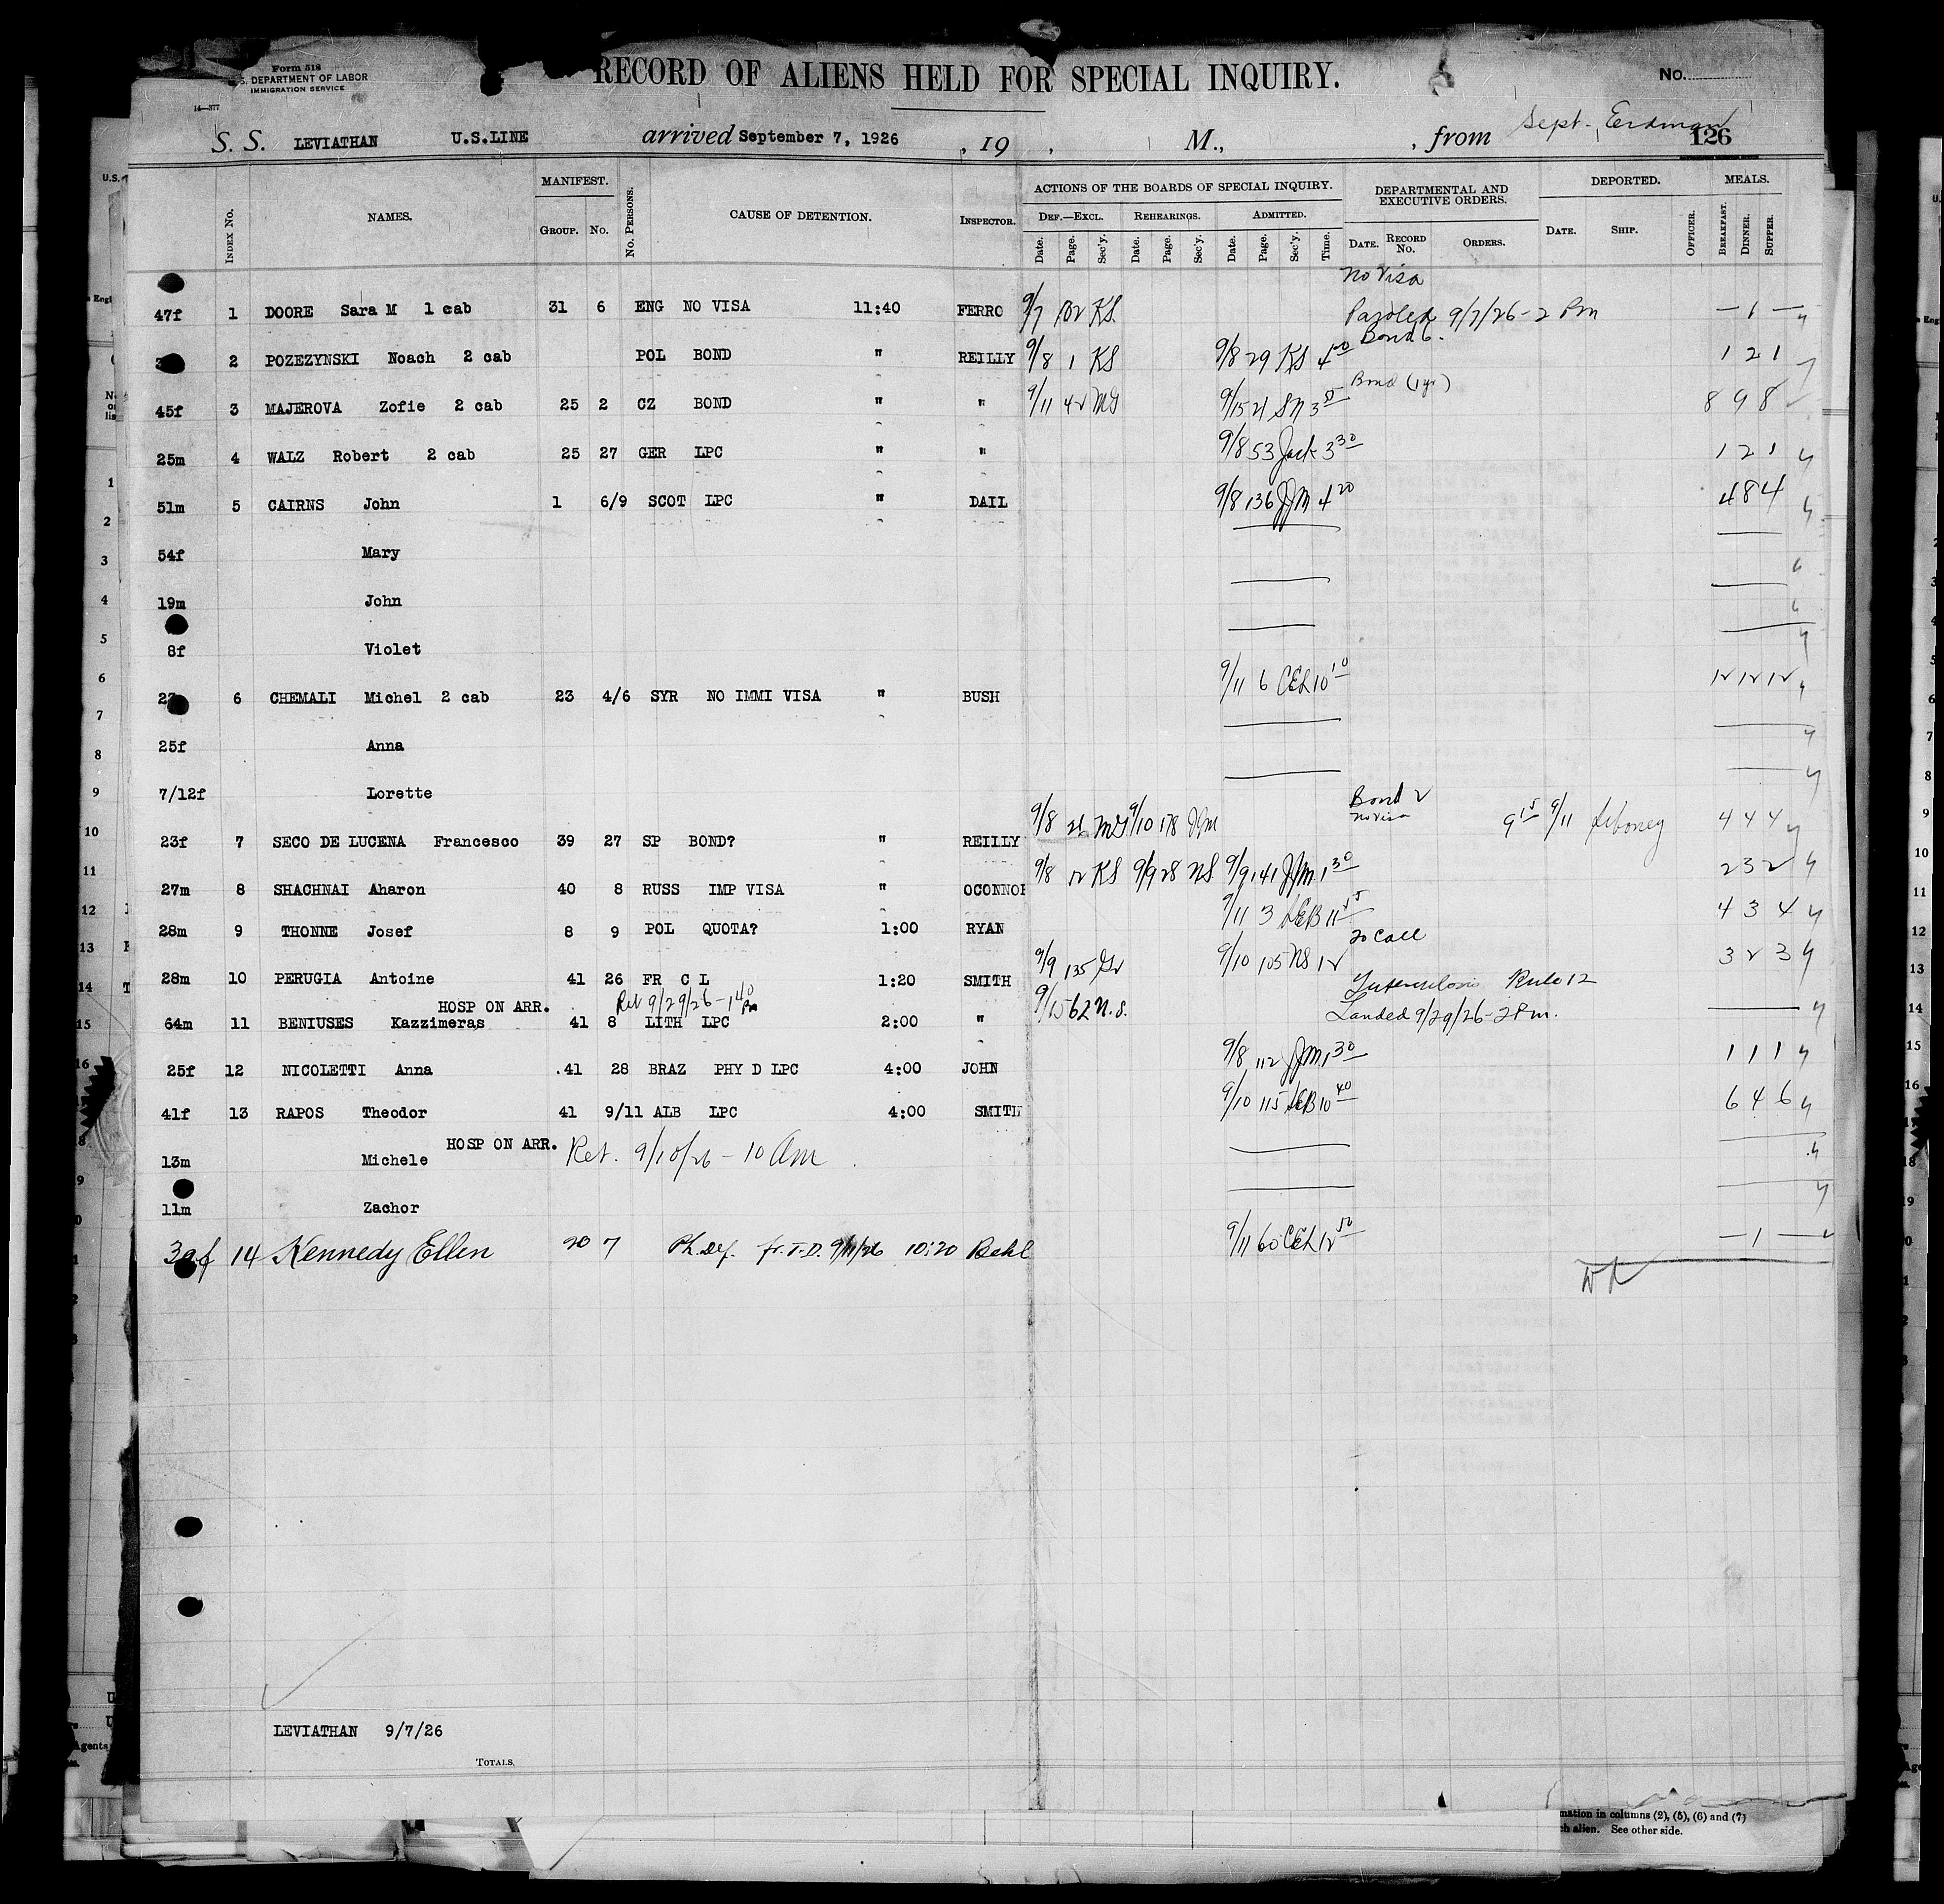 Form 518
S. DEPARTMENT OF LABOR
IMMIGRATION SERVICE
14—377
RECORD OF ALIENS HELD FOR SPECIAL INQUIRY.
No.
S. S. LEVIATHAN U.S.LINE arrived September 7, 1926 , 19 , M., , from Sept. Erdman 126
INDEX No. NAMES. MANIFEST. GROUP. No. No. PERSONS. CAUSE OF DETENTION. INSPECTOR.
ACTIONS OF THE BOARDS OF SPECIAL INQUIRY. DEF.—EXCL. REHEARINGS. ADMITTED.
Date. Page. Sec'y. Date. Page. Sec'y. Date. Page. Sec'y. Time.
DEPARTMENTAL AND EXECUTIVE ORDERS. DATE. RECORD No. ORDERS.
DEPORTED. DATE. SHIP. OFFICER. MEALS. BREAKFAST. DINNER. SUPPER.
No Visa
47f 1 DOORE Sara M 1 cab 31 6 ENG NO VISA 11:40 FERRO 9/7 KS. Paroled 9/7/26-2 Pm — 1 —
Bond 6.
2 POZEZYNSKI Noach 2 cab POL BOND " REILLY 9/8 1 KS 9/8 29 KS 1 2 1
Bond (1 yr)
45f 3 MAJEROVA Zofie 2 cab 25 2 CZ BOND " " 9/11 42 MG 9/15 21 8 9 8
25m 4 WALZ Robert 2 cab 25 27 GER LPC " " 9/8 53 Jack 3 30 1 2 1
51m 5 CAIRNS John 1 6/9 SCOT LPC " DAIL 9/8 136 JJM 4 20 4 8 4
54f Mary
19m John
8f Violet
6 CHEMALI Michel 2 cab 23 4/6 SYR NO IMMI VISA " BUSH 9/11 6 CEL 10 10 12 12 12
25f Anna
7/12f Lorette
Bond 2
no visa
23f 7 SECO DE LUCENA Francesco 39 27 SP BOND? " REILLY 9/8 21 MG 9/10 178 JJM 9 15 9/11 Siboney 4 4 4
27m 8 SHACHNAI Aharon 40 8 RUSS IMP VISA " OCONNOR 9/8 12 KS 9/9 28 NS 9/9 141 JJM 1 30 2 3 2
28m 9 THONNE Josef 8 9 POL QUOTA? 1:00 RYAN 9/11 3 LEB 11 55 4 3 4
To Call
28m 10 PERUGIA Antoine 41 26 FR C L 1:20 SMITH 9/9 135 9/10 105 NS 12 3 2 3
HOSP ON ARR. Ret 9/29/26-1 40 Pm Tuberculosis Rule 12
64m 11 BENIUSES Kazzimeras 41 8 LITH LPC 2:00 " 9/15 62 N.S. Landed 9/29/26-2 Pm.
25f 12 NICOLETTI Anna .41 28 BRAZ PHY D LPC 4:00 JOHN 9/8 112 JJM 1 30 1 1 1
41f 13 RAPOS Theodor 41 9/11 ALB LPC 4:00 SMITH 9/10 115 LEB 10 40 6 4 6
HOSP ON ARR. Ret. 9/10/26 - 10 Am
13m Michele
11m Zachor
14 Kennedy Ellen 20 7 Ph. Def. fr. T.D. 9/11/26 10:20 9/11 60 CEL 12 50 — 1 —
LEVIATHAN 9/7/26
TOTALS.
mation in columns (2), (5), (6) and (7)
ch alien. See other side.